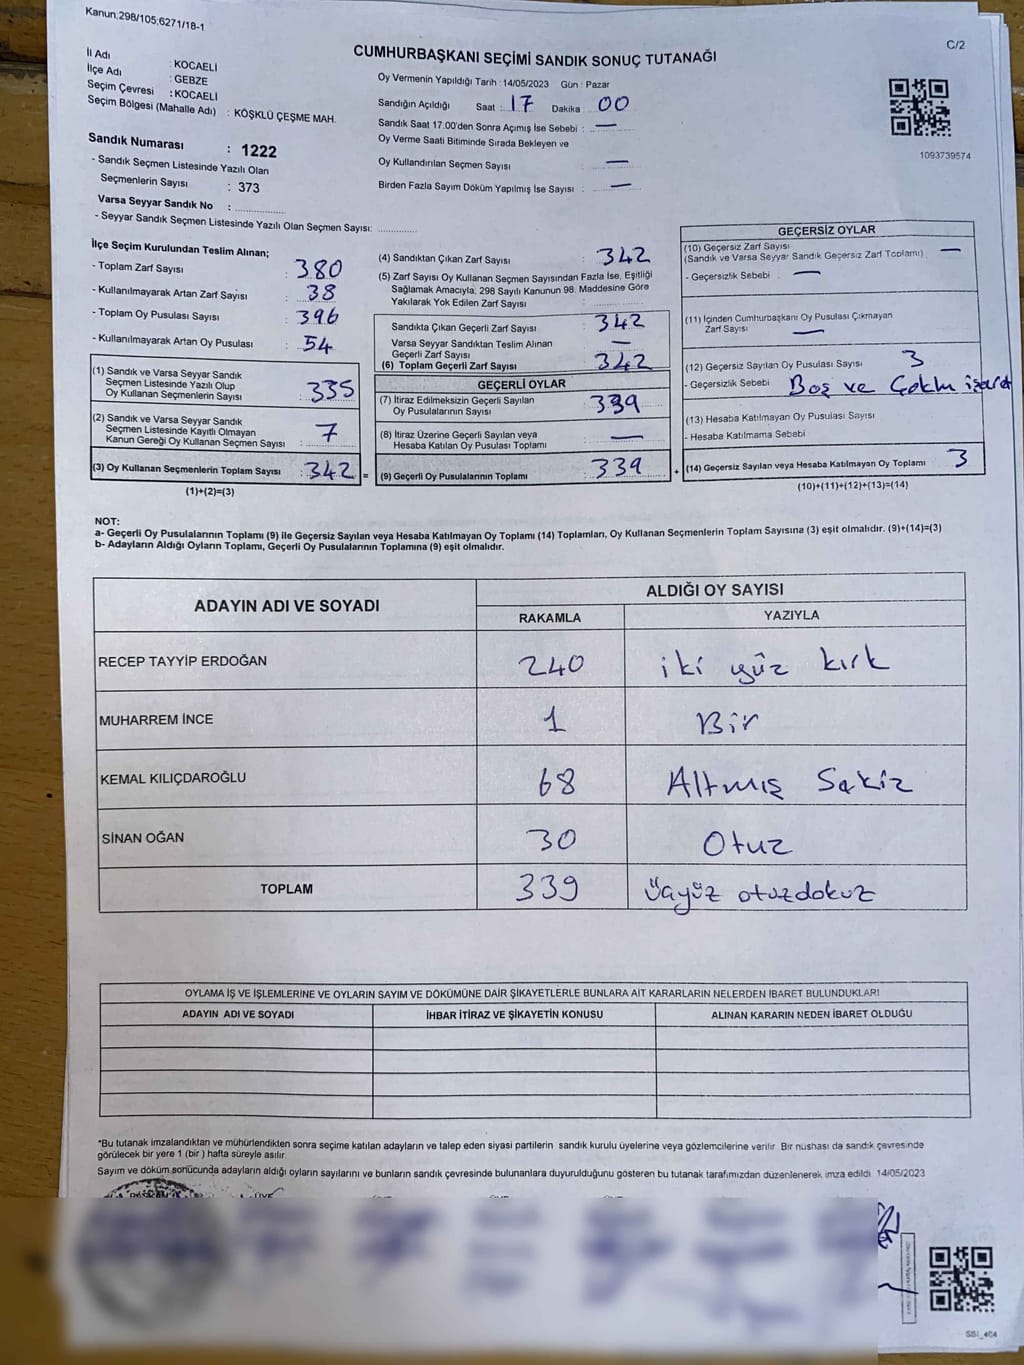 Kanun;298/105;6271/18-1
C/2
CUMHURBAŞKANI SEÇİMİ SANDIK SONUÇ TUTANAĞI
İl Adı : KOCAELİ
İlçe Adı : GEBZE
Seçim Çevresi : KOCAELİ
Seçim Bölgesi (Mahalle Adı) : KÖŞKLÜ ÇEŞME MAH.
Sandık Numarası : 1222
- Sandık Seçmen Listesinde Yazılı Olan
Seçmenlerin Sayısı : 373
Varsa Seyyar Sandık No :
- Seyyar Sandık Seçmen Listesinde Yazılı Olan Seçmen Sayısı:
Oy Vermenin Yapıldığı Tarih : 14/05/2023 Gün : Pazar
Sandığın Açıldığı Saat : 17 Dakika : 00
Sandık Saat 17:00'den Sonra Açımış İse Sebebi : —
Oy Verme Saati Bitiminde Sırada Bekleyen ve
Oy Kullandırılan Seçmen Sayısı —
Birden Fazla Sayım Döküm Yapılmış İse Sayısı : —
1093739574
İlçe Seçim Kurulundan Teslim Alınan;
- Toplam Zarf Sayısı : 380
- Kullanılmayarak Artan Zarf Sayısı : 38
- Toplam Oy Pusulası Sayısı : 396
- Kullanılmayarak Artan Oy Pusulası : 54
(1) Sandık ve Varsa Seyyar Sandık
Seçmen Listesinde Yazılı Olup
Oy Kullanan Seçmenlerin Sayısı : 335
(2) Sandık ve Varsa Seyyar Sandık
Seçmen Listesinde Kayıtlı Olmayan
Kanun Gereği Oy Kullanan Seçmen Sayısı : 7
(3) Oy Kullanan Seçmenlerin Toplam Sayısı : 342 =
(1)+(2)=(3)
(4) Sandıktan Çıkan Zarf Sayısı : 342
(5) Zarf Sayısı Oy Kullanan Seçmen Sayısından Fazla İse, Eşitliği
Sağlamak Amacıyla; 298 Sayılı Kanunun 98. Maddesine Göre
Yakılarak Yok Edilen Zarf Sayısı :
Sandıkta Çıkan Geçerli Zarf Sayısı : 342
Varsa Seyyar Sandıktan Teslim Alınan
Geçerli Zarf Sayısı —
(6) Toplam Geçerli Zarf Sayısı : 342
GEÇERLİ OYLAR
(7) İtiraz Edilmeksizin Geçerli Sayılan
Oy Pusulalarının Sayısı : 339
(8) İtiraz Üzerine Geçerli Sayılan veya
Hesaba Katılan Oy Pusulası Toplamı : —
(9) Geçerli Oy Pusulalarının Toplamı : 339 +
GEÇERSİZ OYLAR
(10) Geçersiz Zarf Sayısı
(Sandık ve Varsa Seyyar Sandık Geçersiz Zarf Toplamı) —
- Geçersizlik Sebebi : —
(11) İçinden Cumhurbaşkanı Oy Pusulası Çıkmayan
Zarf Sayısı —
(12) Geçersiz Sayılan Oy Pusulası Sayısı 3
- Geçersizlik Sebebi Boş ve
(13) Hesaba Katılmayan Oy Pusulası Sayısı
- Hesaba Katılmama Sebebi
(14) Geçersiz Sayılan veya Hesaba Katılmayan Oy Toplamı 3
(10)+(11)+(12)+(13)=(14)
NOT:
a- Geçerli Oy Pusulalarının Toplamı (9) ile Geçersiz Sayılan veya Hesaba Katılmayan Oy Toplamı (14) Toplamları, Oy Kullanan Seçmenlerin Toplam Sayısına (3) eşit olmalıdır. (9)+(14)=(3)
b- Adayların Aldığı Oyların Toplamı, Geçerli Oy Pusulalarının Toplamına (9) eşit olmalıdır.
ADAYIN ADI VE SOYADI
ALDIĞI OY SAYISI
RAKAMLA YAZIYLA
RECEP TAYYİP ERDOĞAN 240 iki yüz kırk
MUHARREM İNCE 1 Bir
KEMAL KILIÇDAROĞLU 68 Altmış Sekiz
SİNAN OĞAN 30 Otuz
TOPLAM 339 üçyüz otuzdokuz
OYLAMA İŞ VE İŞLEMLERİNE VE OYLARIN SAYIM VE DÖKÜMÜNE DAİR ŞİKAYETLERLE BUNLARA AİT KARARLARIN NELERDEN İBARET BULUNDUKLARI
ADAYIN ADI VE SOYADI İHBAR İTİRAZ VE ŞİKAYETİN KONUSU ALINAN KARARIN NEDEN İBARET OLDUĞU
*Bu tutanak imzalandıktan ve mühürlendikten sonra seçime katılan adayların ve talep eden siyasi partilerin sandık kurulu üyelerine veya gözlemcilerine verilir. Bir nüshası da sandık çevresinde
görülecek bir yere 1 (bir ) hafta süreyle asılır.
Sayım ve döküm sonucunda adayların aldığı oyların sayılarını ve bunların sandık çevresinde bulunanlara duyurulduğunu gösteren bu tutanak tarafımızdan düzenlenerek imza edildi. 14/05/2023